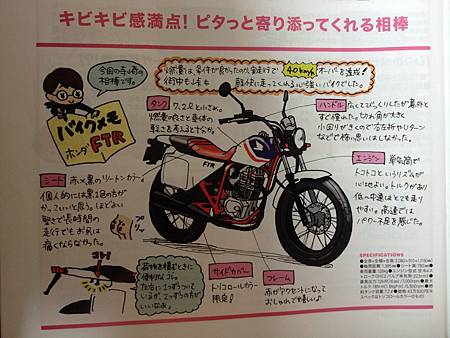 キビキビ感満点! ピタっと寄り添ってくれる相棒
今回の寺崎の
相棒です。
バイクメモ
ホンダ
FTR
燃費は、条件が良かったのか
40km/ℓ
オーバーを達成!
街中も山も
軽快に走ってくれる心強いバイクでした。
タンク
7.2ℓと小さめ。
燃費の良さと車体の
軽さを考えると十分か。
ハンドル
広くてびっくりしたが意外と
すぐ慣れた。切れ角が大きく
小回りがきくので
などで怖い思いはしなかった。
エンジン
単気筒で
トコトコというリズムが
心地よい。トルクがあり
低〜中速はとても走り
やすい。高速では
パワー不足を感じた。
シート
赤×黒のツートンカラー。
個人的には黒1色の方が
かっこいいと思う。ほどよい
堅さで長時間の
走行でもお尻は
痛くならなかった。
プリッ
FTR
荷物を積むときに
便利なコレ。
左右に1つずつついて
いるが、2つずつの方が
いいなあ。
サイドカバー
トリコロールカラー
限定!
フレーム
赤がアクセントになって
おしゃれでも嬉しい♪
SPECIFICATIONS